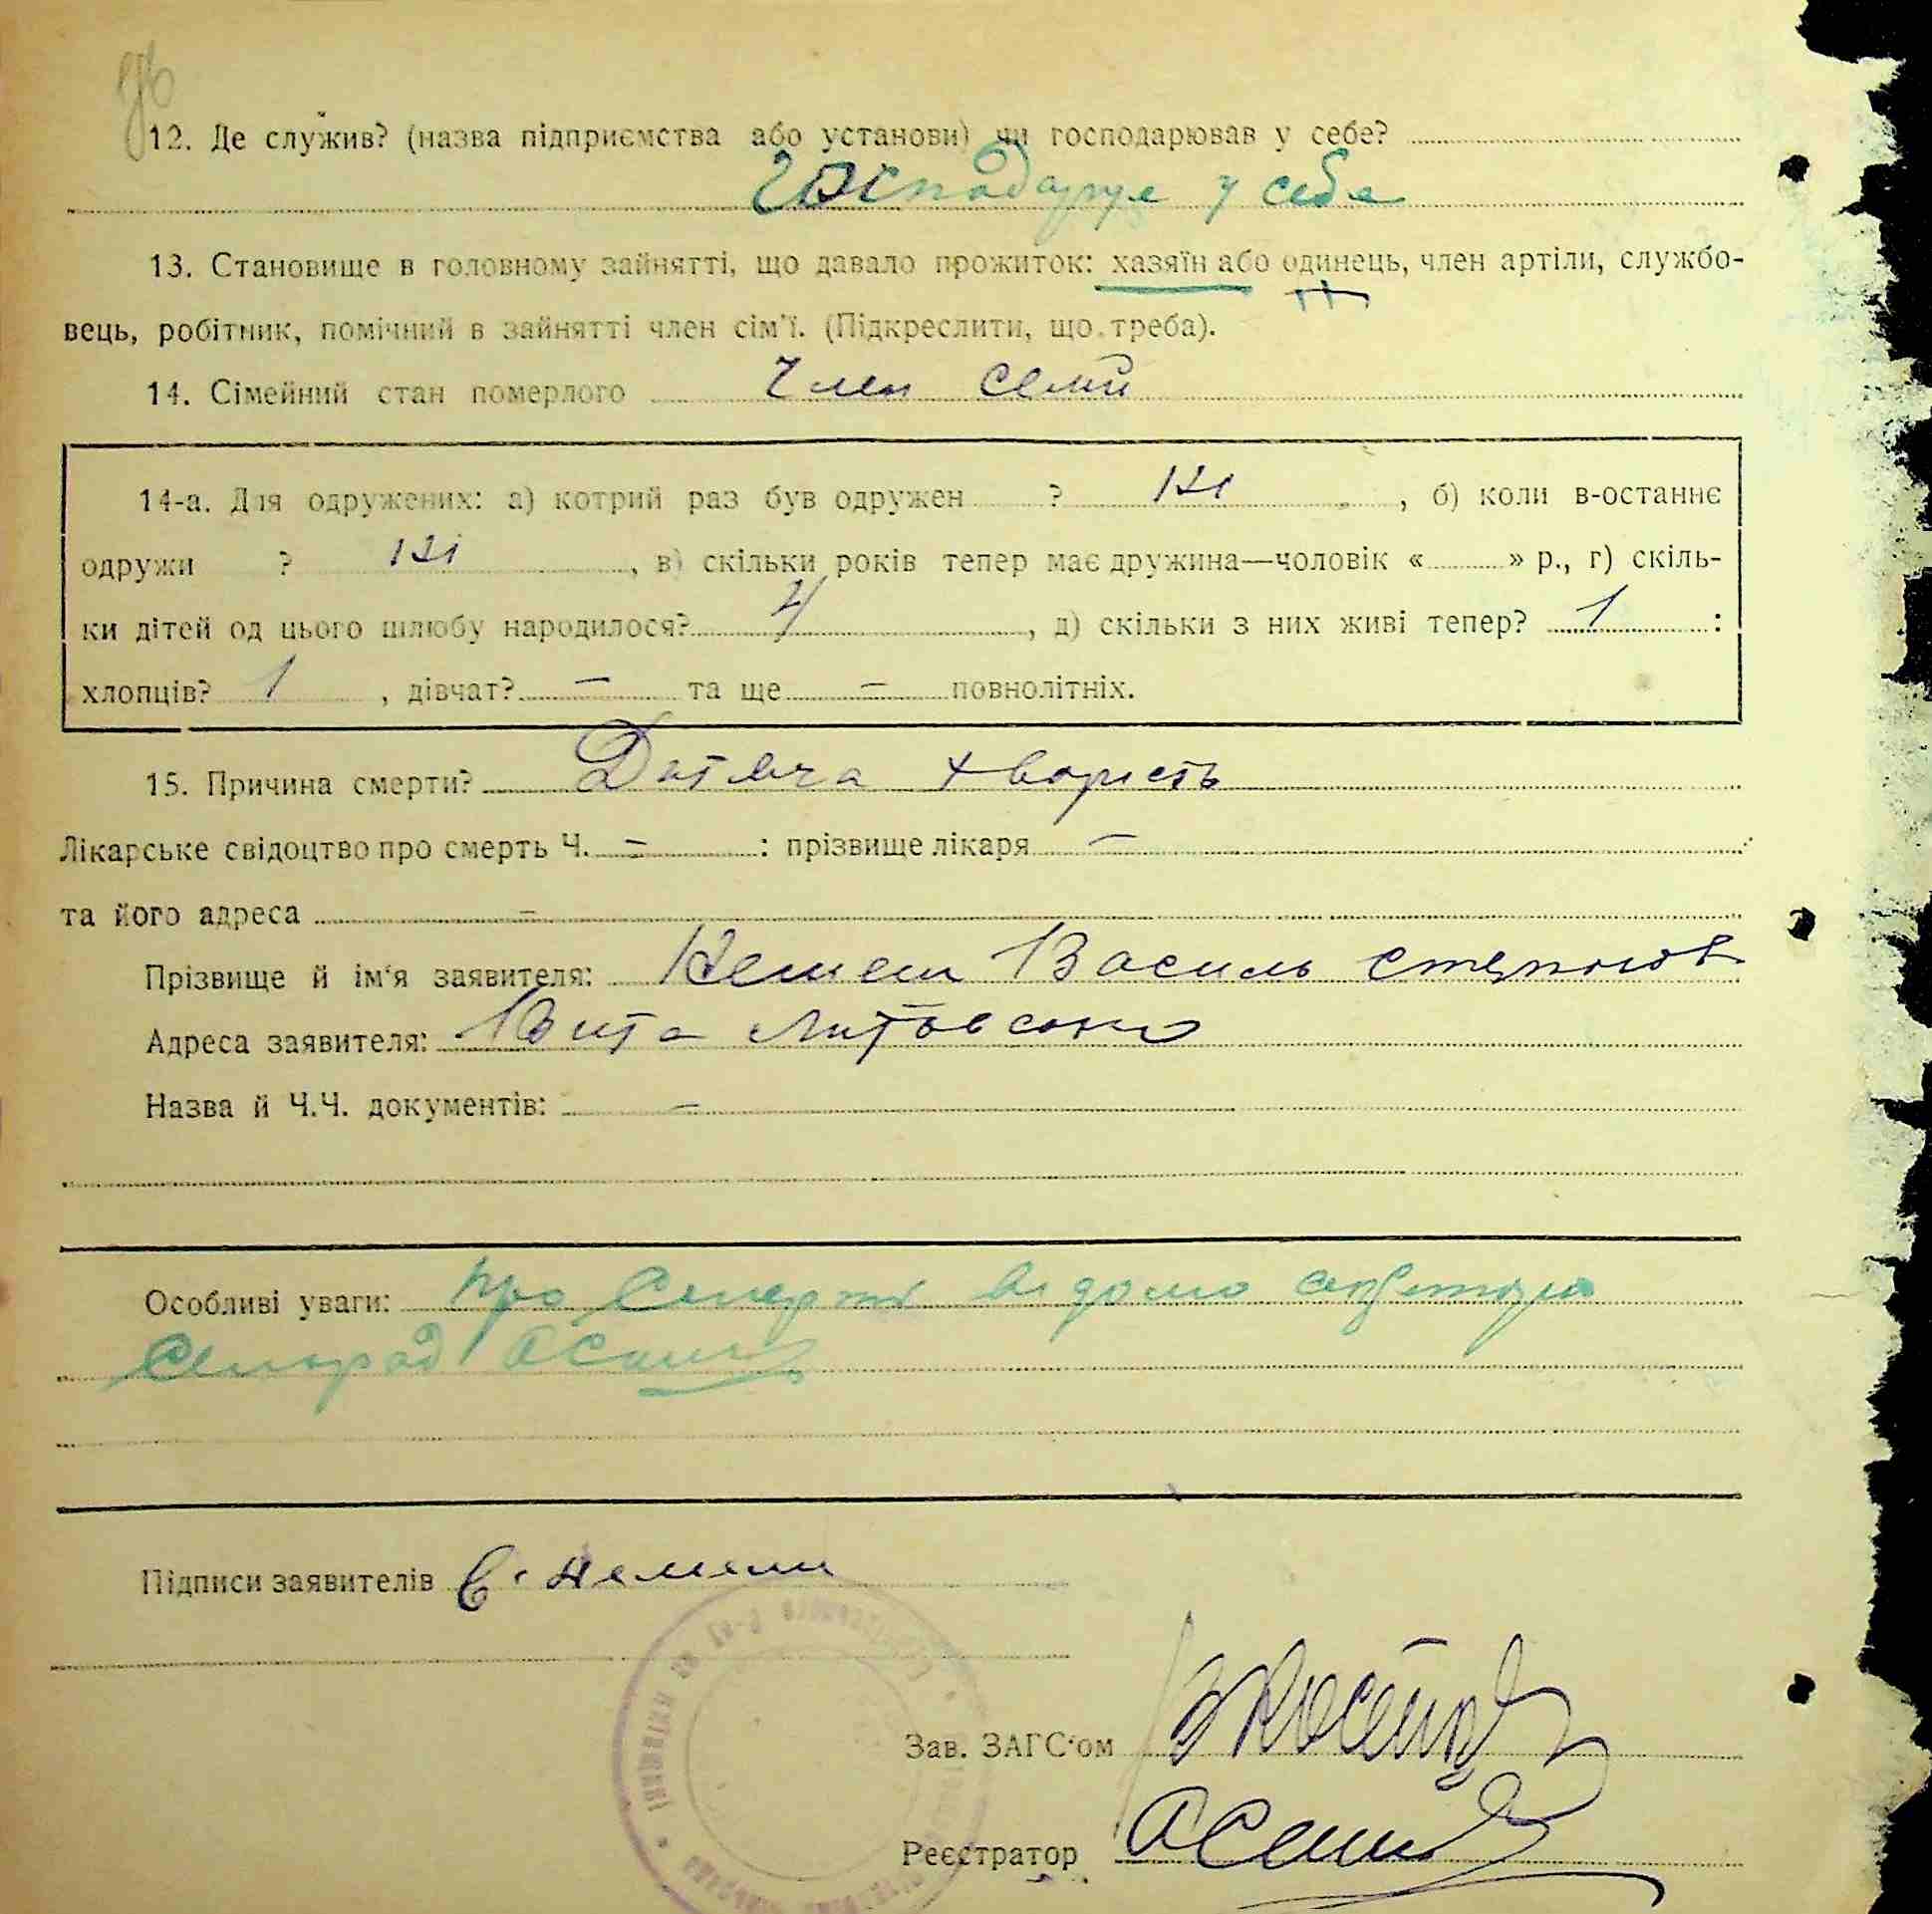 12. Де служив? (назва підприємства або установи) чи господарював у себе?
Господарує у себе
13. Становище в головному зайнятті, що давало прожиток: хазяїн або одинець, член артіли, службо-
вець, робітник, помічний в зайнятті член сім'ї. (Підкреслити, що треба).
14. Сімейний стан померлого Член семи
14-а. Для одружених: а) котрий раз був одружен ? 1й , б) коли в-останнє
одружи ? , в) скільки років тепер має дружина—чоловік « » р., г) скіль-
ки дітей од цього шлюбу народилося? 4 , д) скільки з них живі тепер? 1 :
хлопців? 1 , дівчат? — та ще — повнолітніх.
15. Причина смерти? Дитяча хвористь
Лікарське свідоцтво про смерть Ч. — : прізвище лікаря —
та його адреса —
Прізвище й ім'я заявителя: Немеш Василь Степанов
Адреса заявителя: Вита Литовська
Назва й Ч.Ч. документів: —
Особливі уваги: про смерть відомо секретарю
сельрад
Підписи заявителів В. Немеш
Зав. ЗАГС'ом
Реєстратор